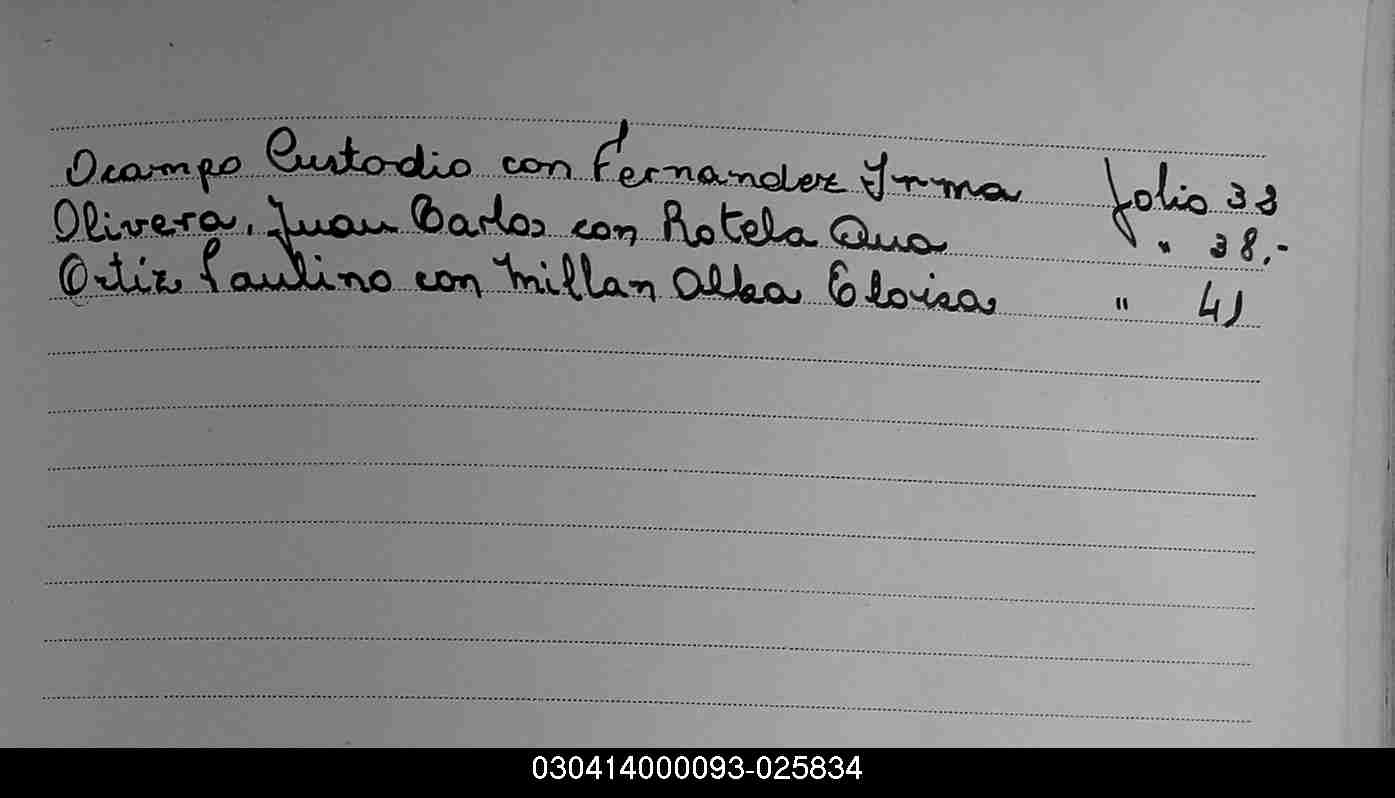 Ocampo Custodio con Fernandez Irma folio 33
Olivera, Juan Carlos con Rotela Ana " 38.-
Ortiz Paulino con Millan Alba Eloisa " 41
030414000093-025834